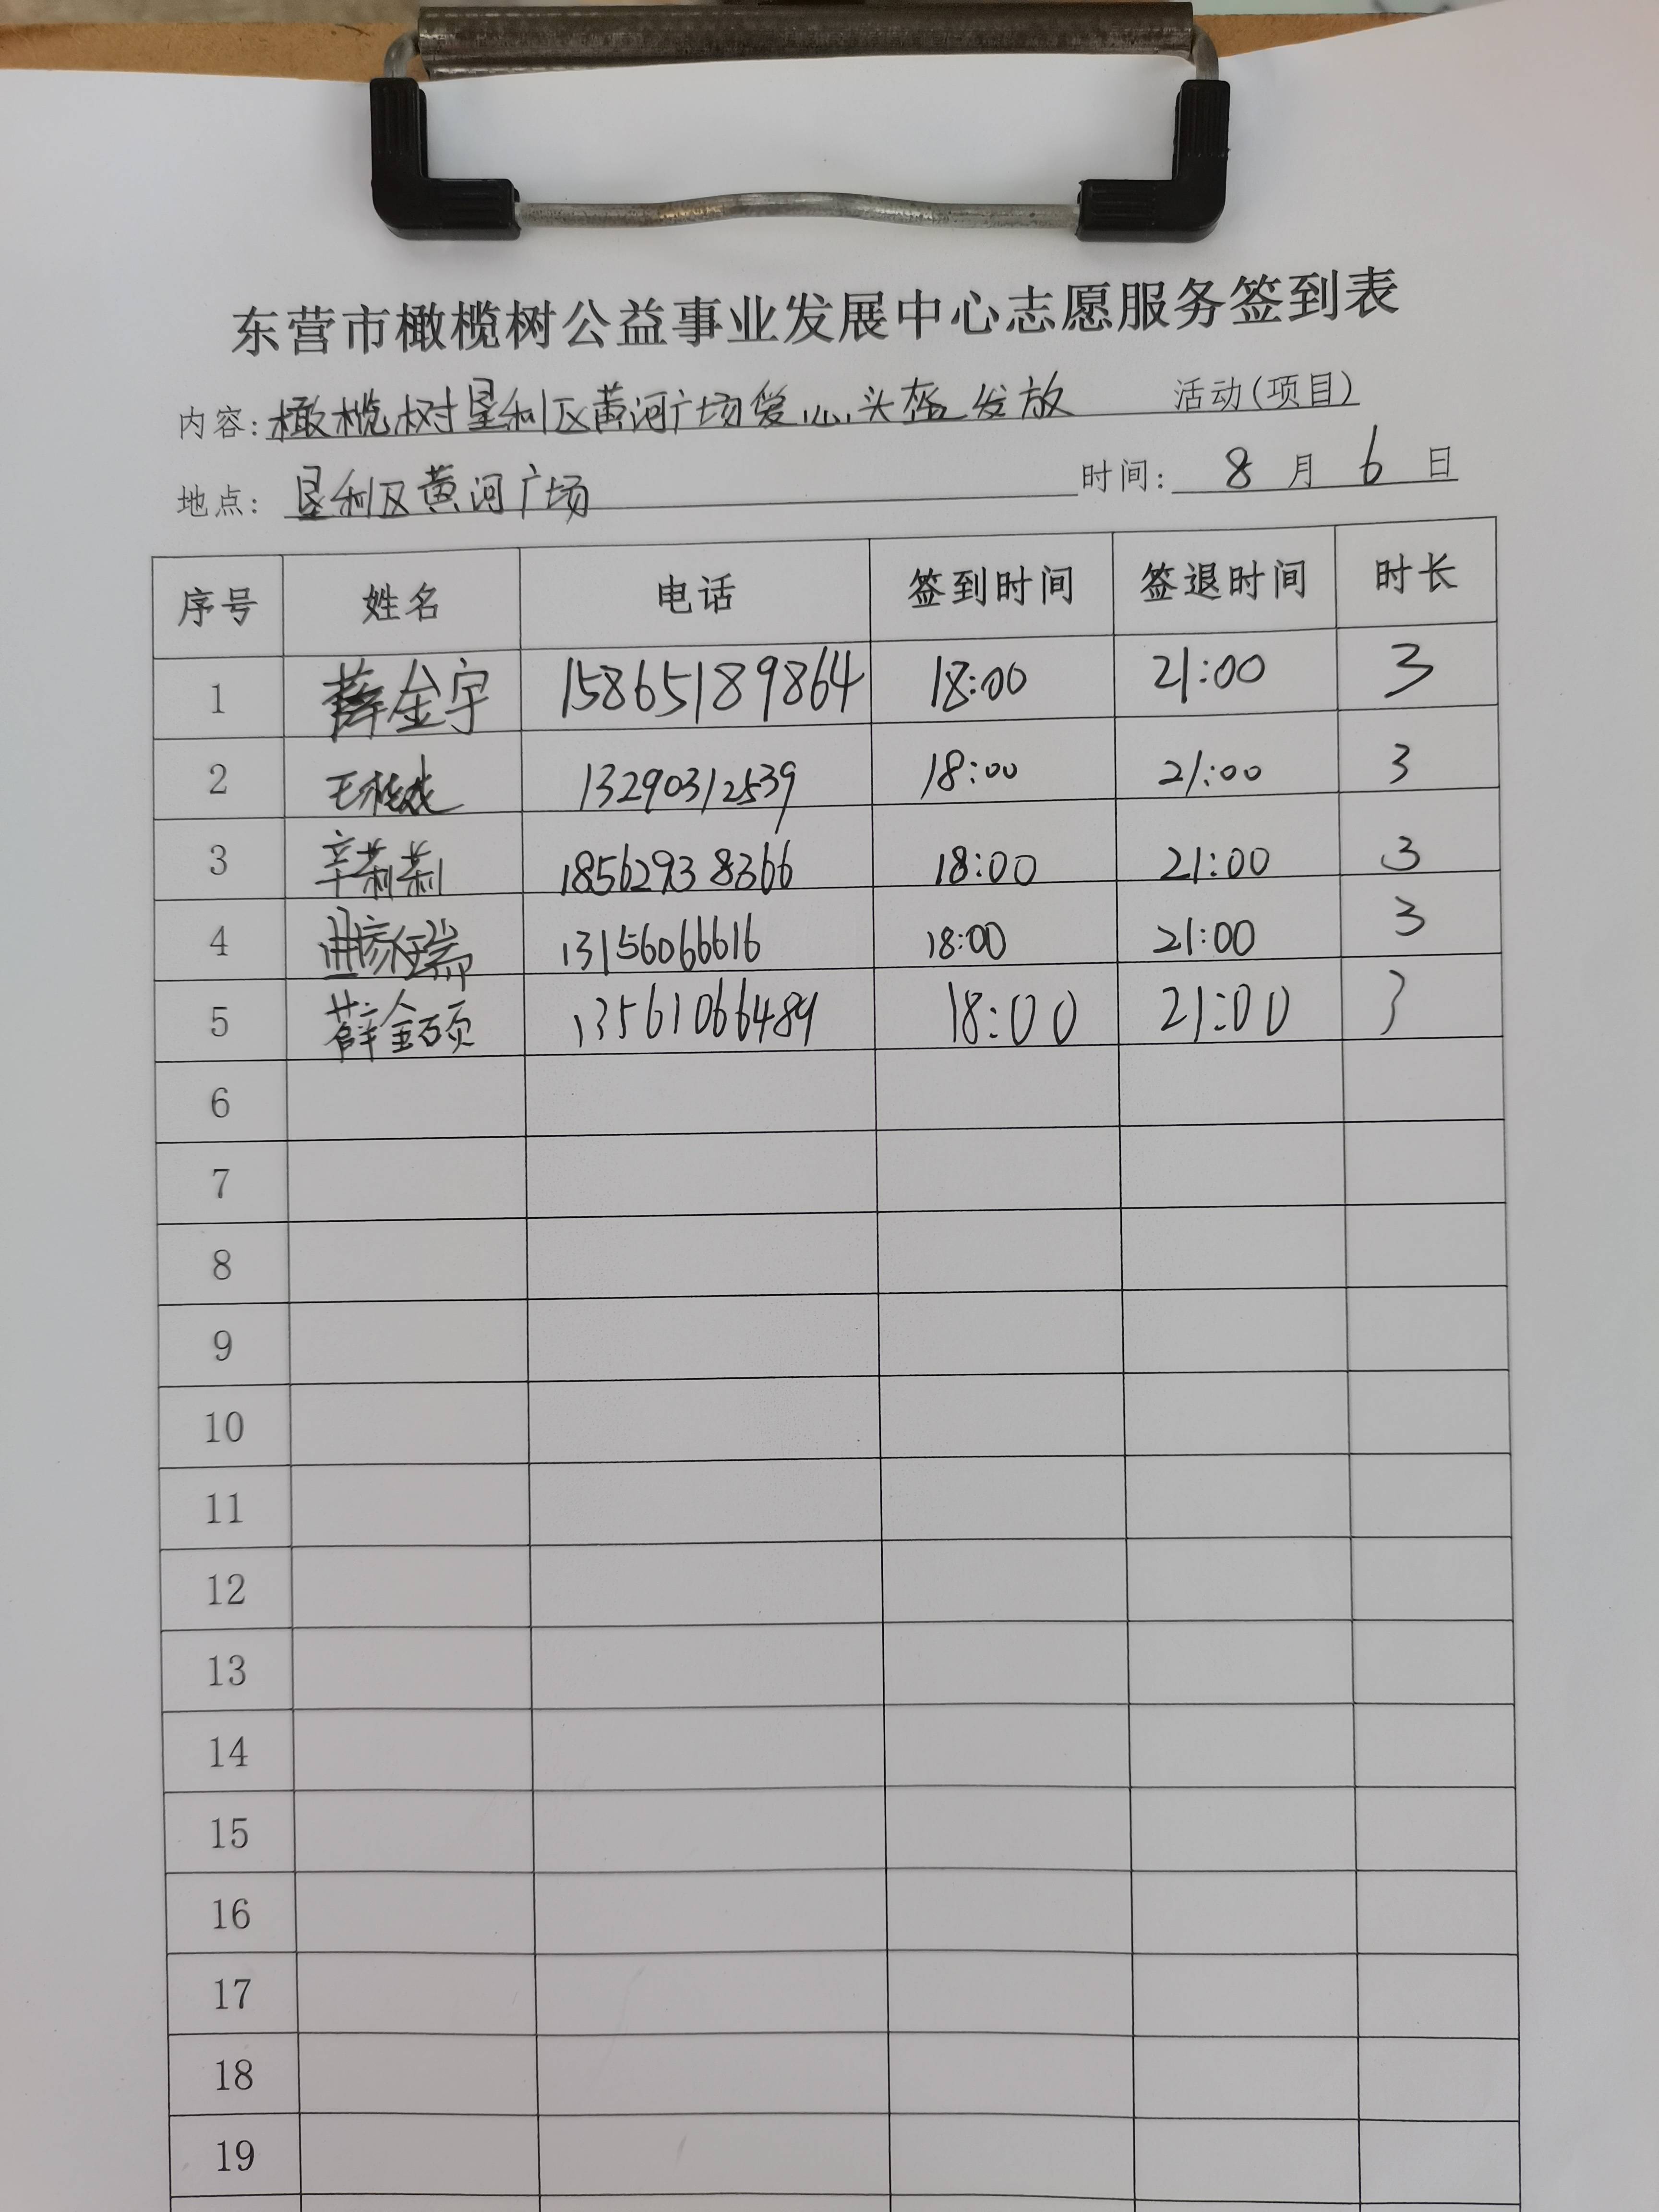 东营市橄榄树公益事业发展中心志愿服务签到表
内容: 橄榄树垦利区黄河广场爱心头盔发放 活动(项目)
地点: 垦利区黄河广场 时间: 8 月 6 日
序号 姓名 电话 签到时间 签退时间 时长
1 薛金宇 15865189864 18:00 21:00 3
2 王 13290312539 18:00 21:00 3
3 辛莉莉 18562938366 18:00 21:00 3
4 瑞 13156066616 18:00 21:00 3
5 薛金硕 13561066489 18:00 21:00 3
6
7
8
9
10
11
12
13
14
15
16
17
18
19